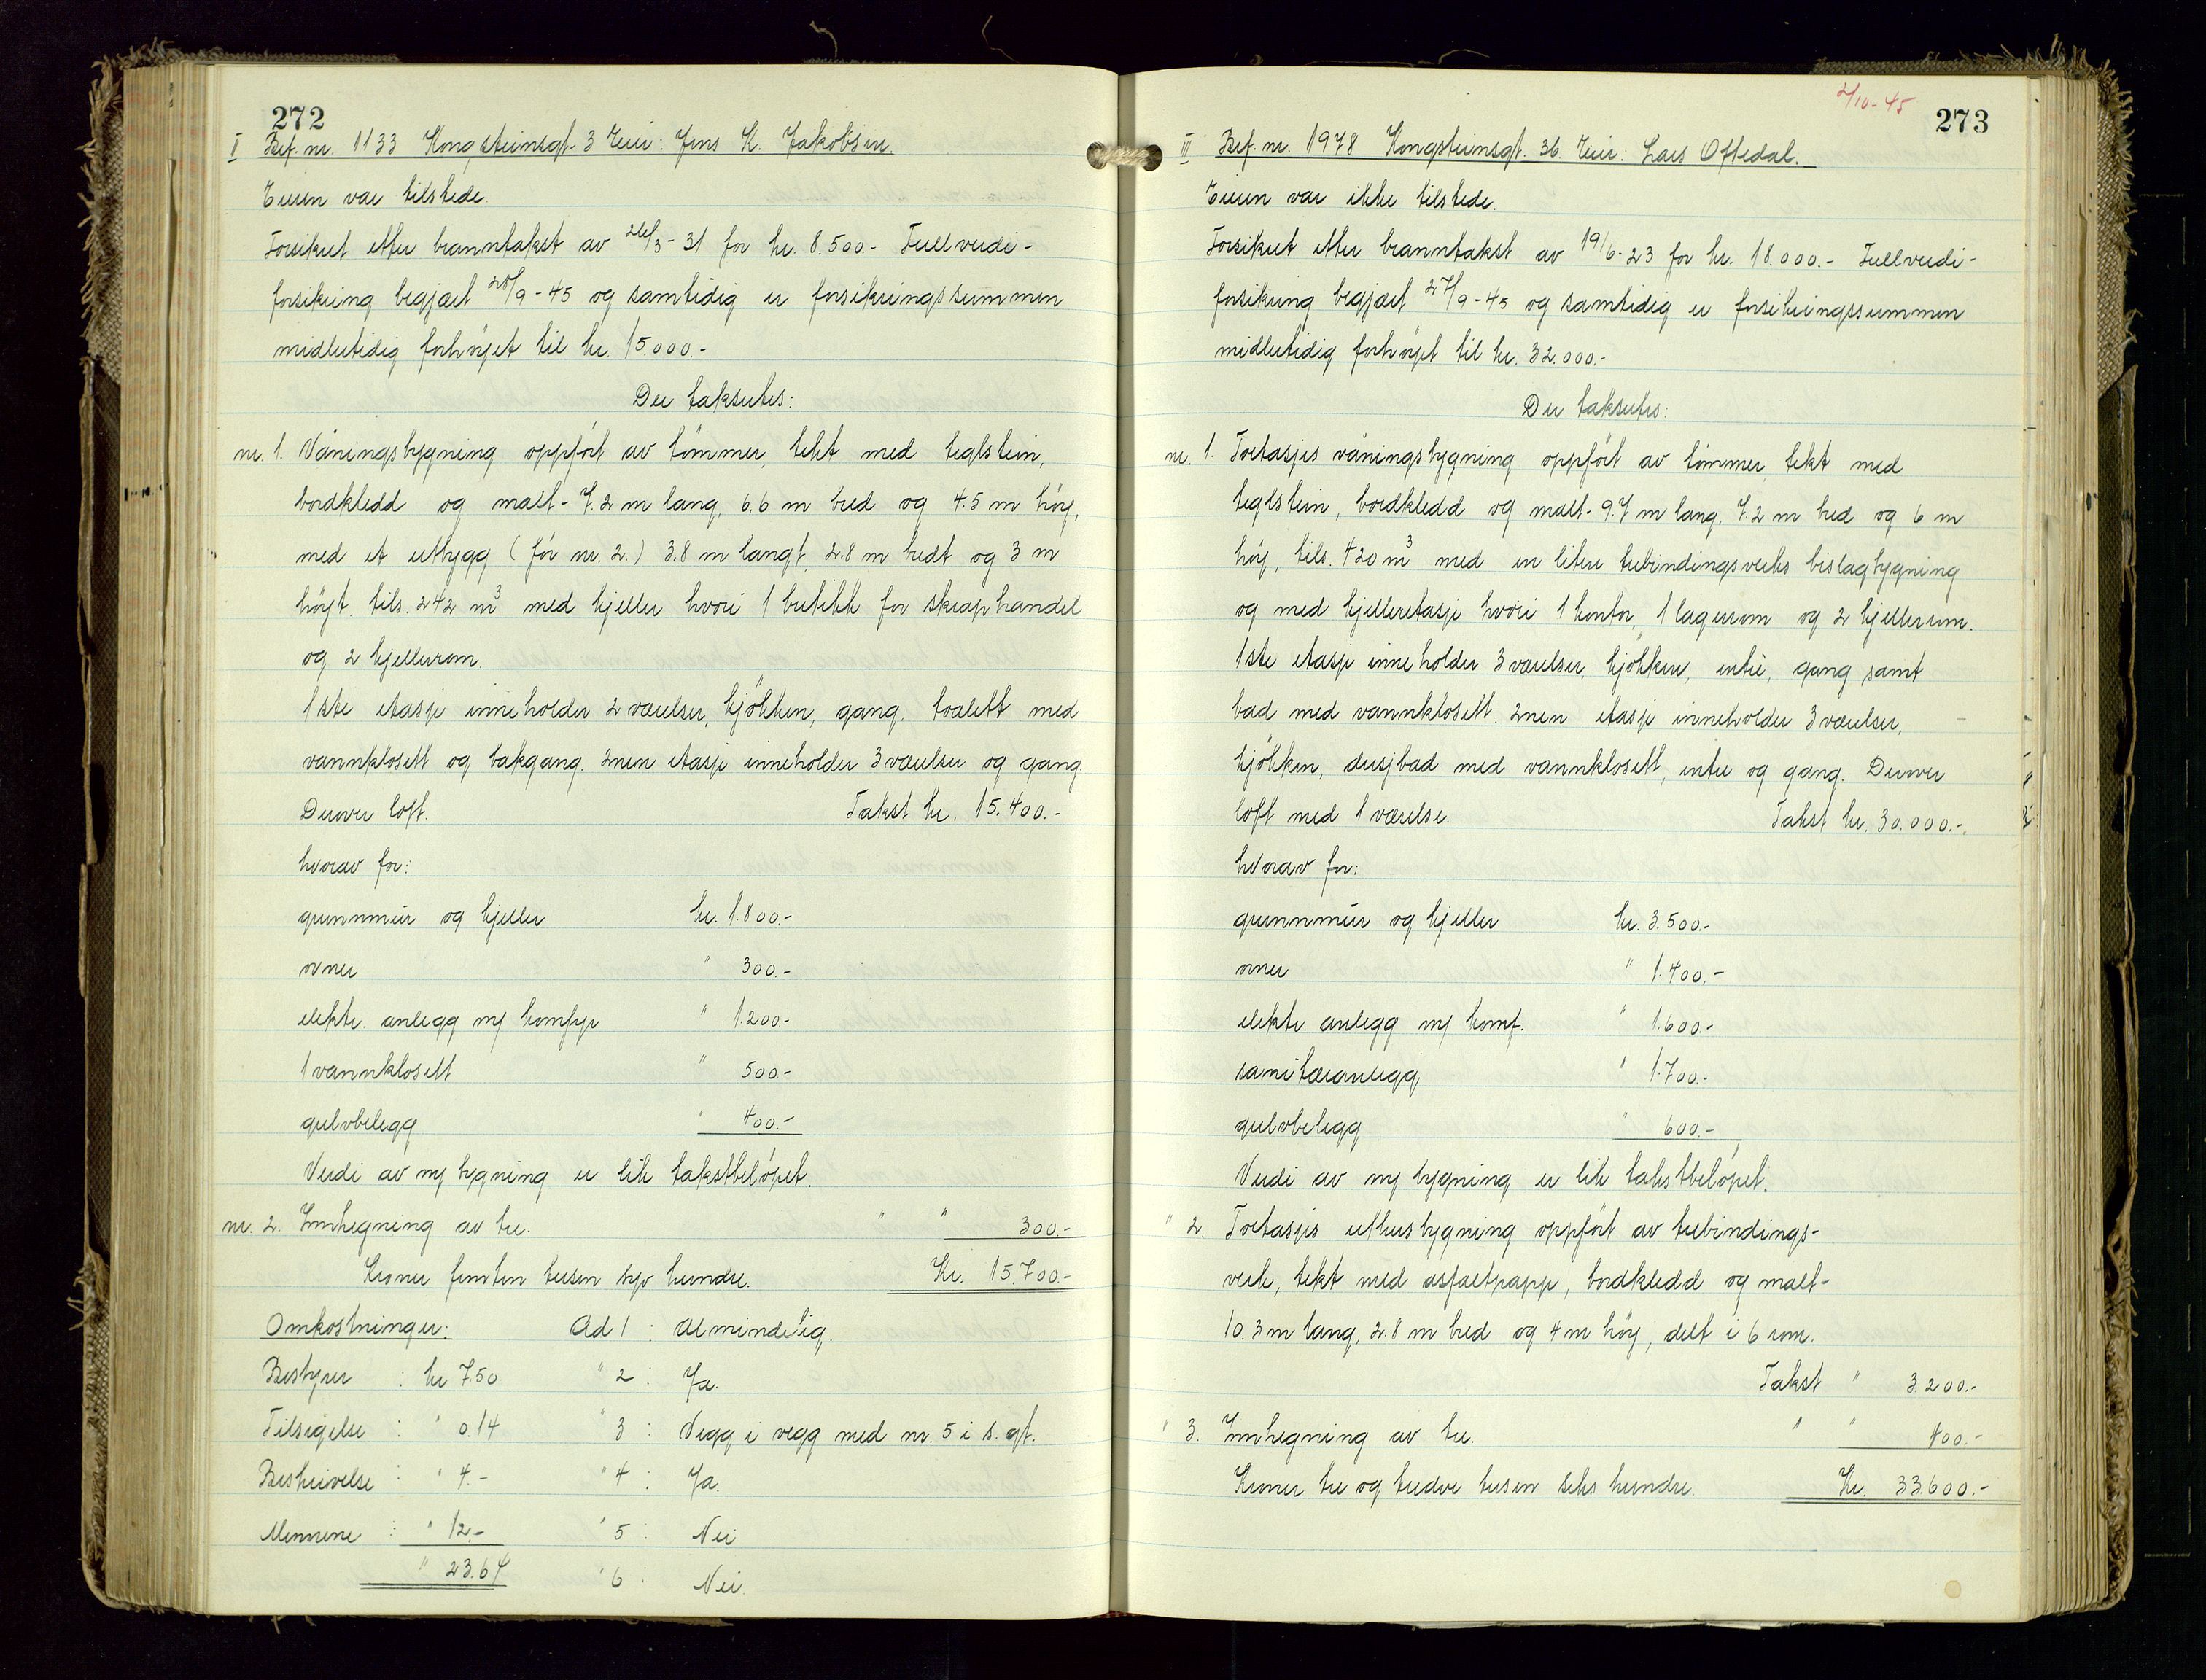 272
I Brf. nr. 1133 Kongsteinsgt. 3 Eier: Jens K. Jakobsen.
Eieren var tilstede.
Forsikret etter branntakst av 26/3-31 for kr. 8.500.- Fullverdi-
forsikring begjært 28/9-45 og samtidig er forsikringssummen
midlertidig forhöyet til kr. 15.000.-
Der takseres:
nr. 1. Våningsbygning oppfört av tömmer, tekt med teglstein,
bordkledd og malt - 7.2 m lang, 6.6 m bred og 4.5 m höy,
med et utbygg (för nr. 2.) 3.8 m langt, 2.8 m bredt og 3 m
höyt. tils. 242 m³ med kjeller hvori 1 butikk for skraphandel
og 2 kjellerrom.
1ste etasje inneholder 2 værelser, kjökken, gang, toalett med
vannklosett og bakgang. 2nen etasje inneholder 3 værelser og gang.
Derover loft. Takst kr. 15.400.-
hvorav for:
grunnmur og kjeller kr. 1.800.-
ovner " 300.-
elektr. anlegg m/ komfyr " 1.200.-
1 vannklosett " 500.-
gulvbelegg " 400.-
Verdi av ny bygning er lik takstbelöpet.
nr. 2. Innhegning av tre. " " 300.-
Kroner femten tusen syv hundre. Kr. 15.700.-
Omkostninger: Ad 1 : Almindelig.
Bestyrer : kr 7.50 " 2 : Ja.
Tilsigelse : " 0.14 " 3 : Vegg i vegg med nr. 5 i s. gt.
Beskrivelse : " 4.- " 4 : Ja.
Mennene : " 12.- " 5 : Nei
" 23.64 " 6 : Nei.
2/10-45
273
III Brf. nr. 1978 Kongsteinsgt. 36. Eier: Lars Oftedal.
Eieren var ikke tilstede.
Forsikret etter branntakst av 19/6-23 for kr. 18.000.- Fullverdi-
forsikring begjært 27/9-45 og samtidig er forsikringssummen
midlertidig forhöyet til kr. 32.000.-
Der takseres:
nr. 1. Toetasjes våningsbygning oppfört av tömmer, tekt med
teglstein, bordkledd og malt - 9.7 m lang, 7.2 m bred og 6 m
höy, tils. 420 m³ med en liten trebindingsverks bislagbygning
og med kjelleretasje hvori 1 kontor, 1 lagerrom og 2 kjellerrom.
1ste etasje inneholder 3 værelser, kjökken, entré, gang samt
bad med vannklosett. 2nen etasje inneholder 3 værelser,
kjökken, dusjbad med vannklosett, entre og gang. Derover
loft med 1 værelse. Takst kr. 30.000.-
hvorav for:
grunnmur og kjeller kr. 3.500.-
ovner " 1.400.-
elektr. anlegg m/ komf. " 1.600.-
sanitæranlegg " 1.700.-
gulvbelegg " 600.-
Verdi av ny bygning er lik takstbelöpet.
" 2. Toetasjes uthusbygning oppfört av trebindings-
verk, tekt med asfaltpapp, bordkledd og malt -
10.3 m lang, 2.8 m bred og 4 m höy, delt i 6 rom.
Takst " 3.200.-
" 3. Innhegning av tre. " " 400.-
Kroner tre og tredve tusen seks hundre. Kr. 33.600.-